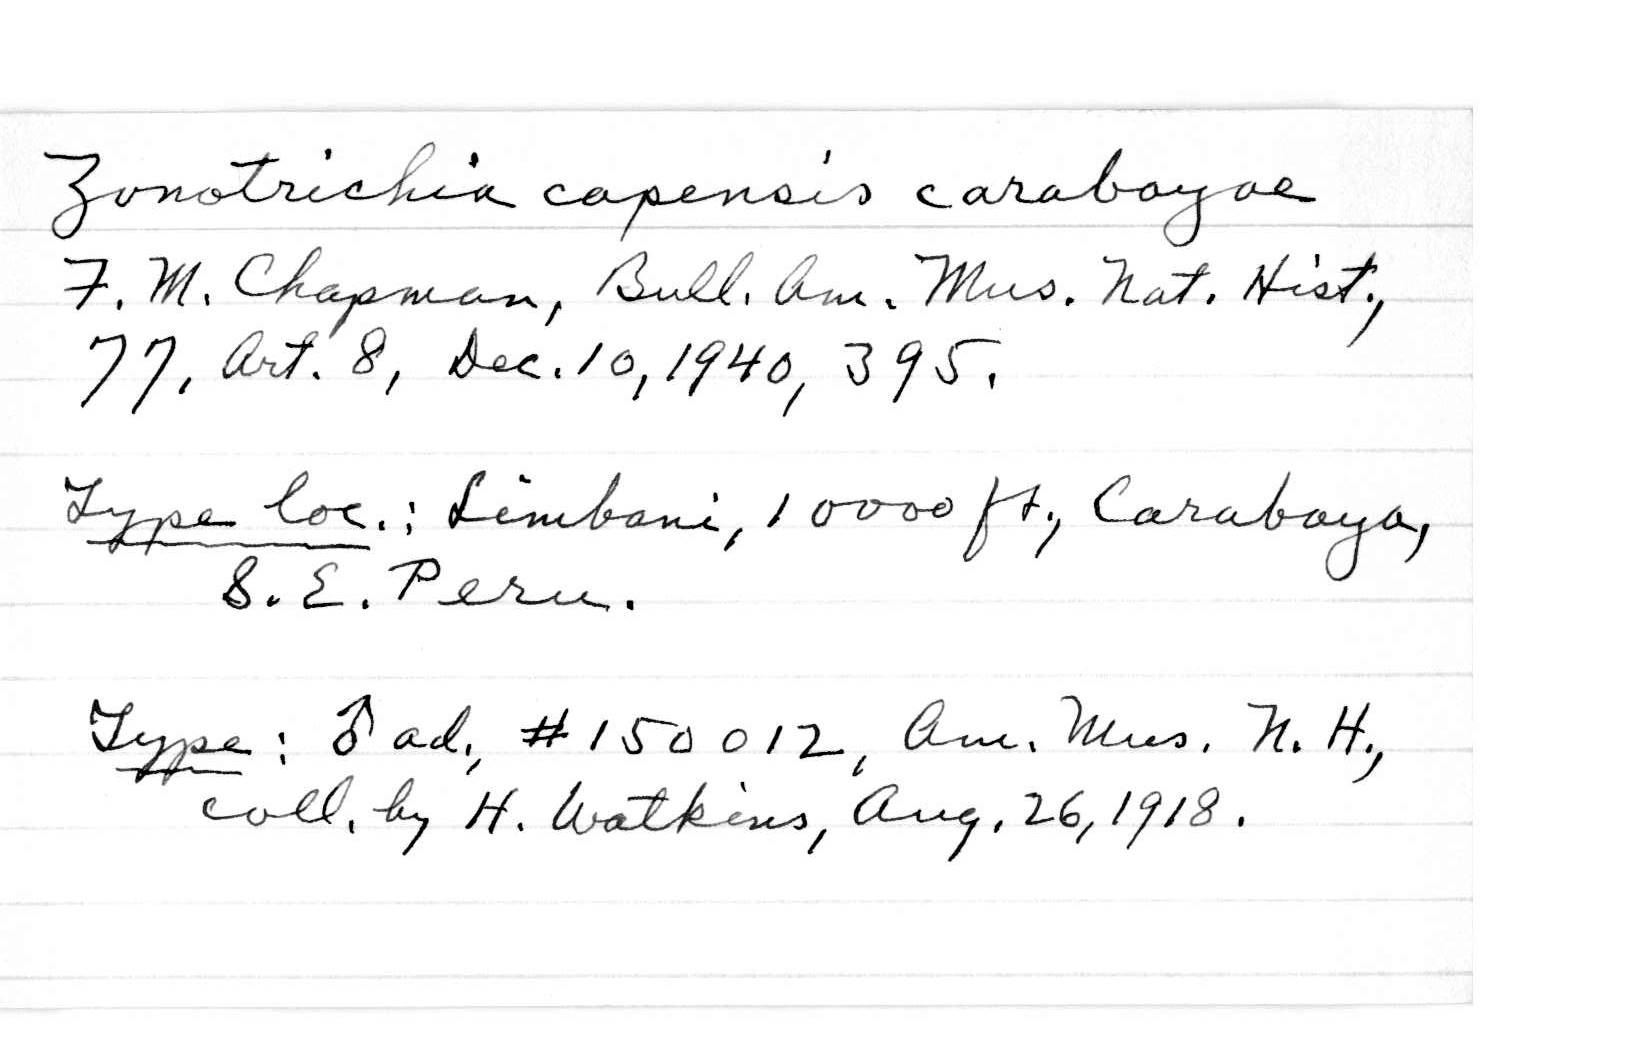 Zonotrichia capensis carabayae
F. M. Chapman, Bull. Am. Mus. Nat. Hist.,
77, Art. 8, Dec. 10, 1940, 395.
Type loc.: Limbani, 10000 ft., Carabaya,
S. E. Peru.
Type: ♂ ad., #150012, Am. Mus. N. H.,
coll. by H. Watkins, Aug. 26, 1918.